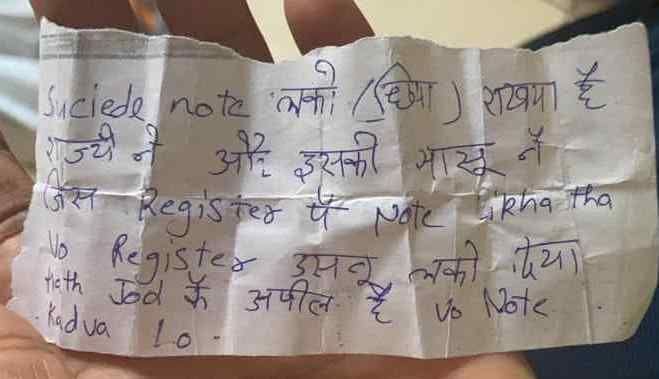 Suciede note लको (छिपा) राखया है
राज्यो ने और इसकी मासू नें
जिस Register पै Note likha tha
Vo Register उसनू लको दिया
Hath Jod कै अपील है Vo Note
Kadva Lo.